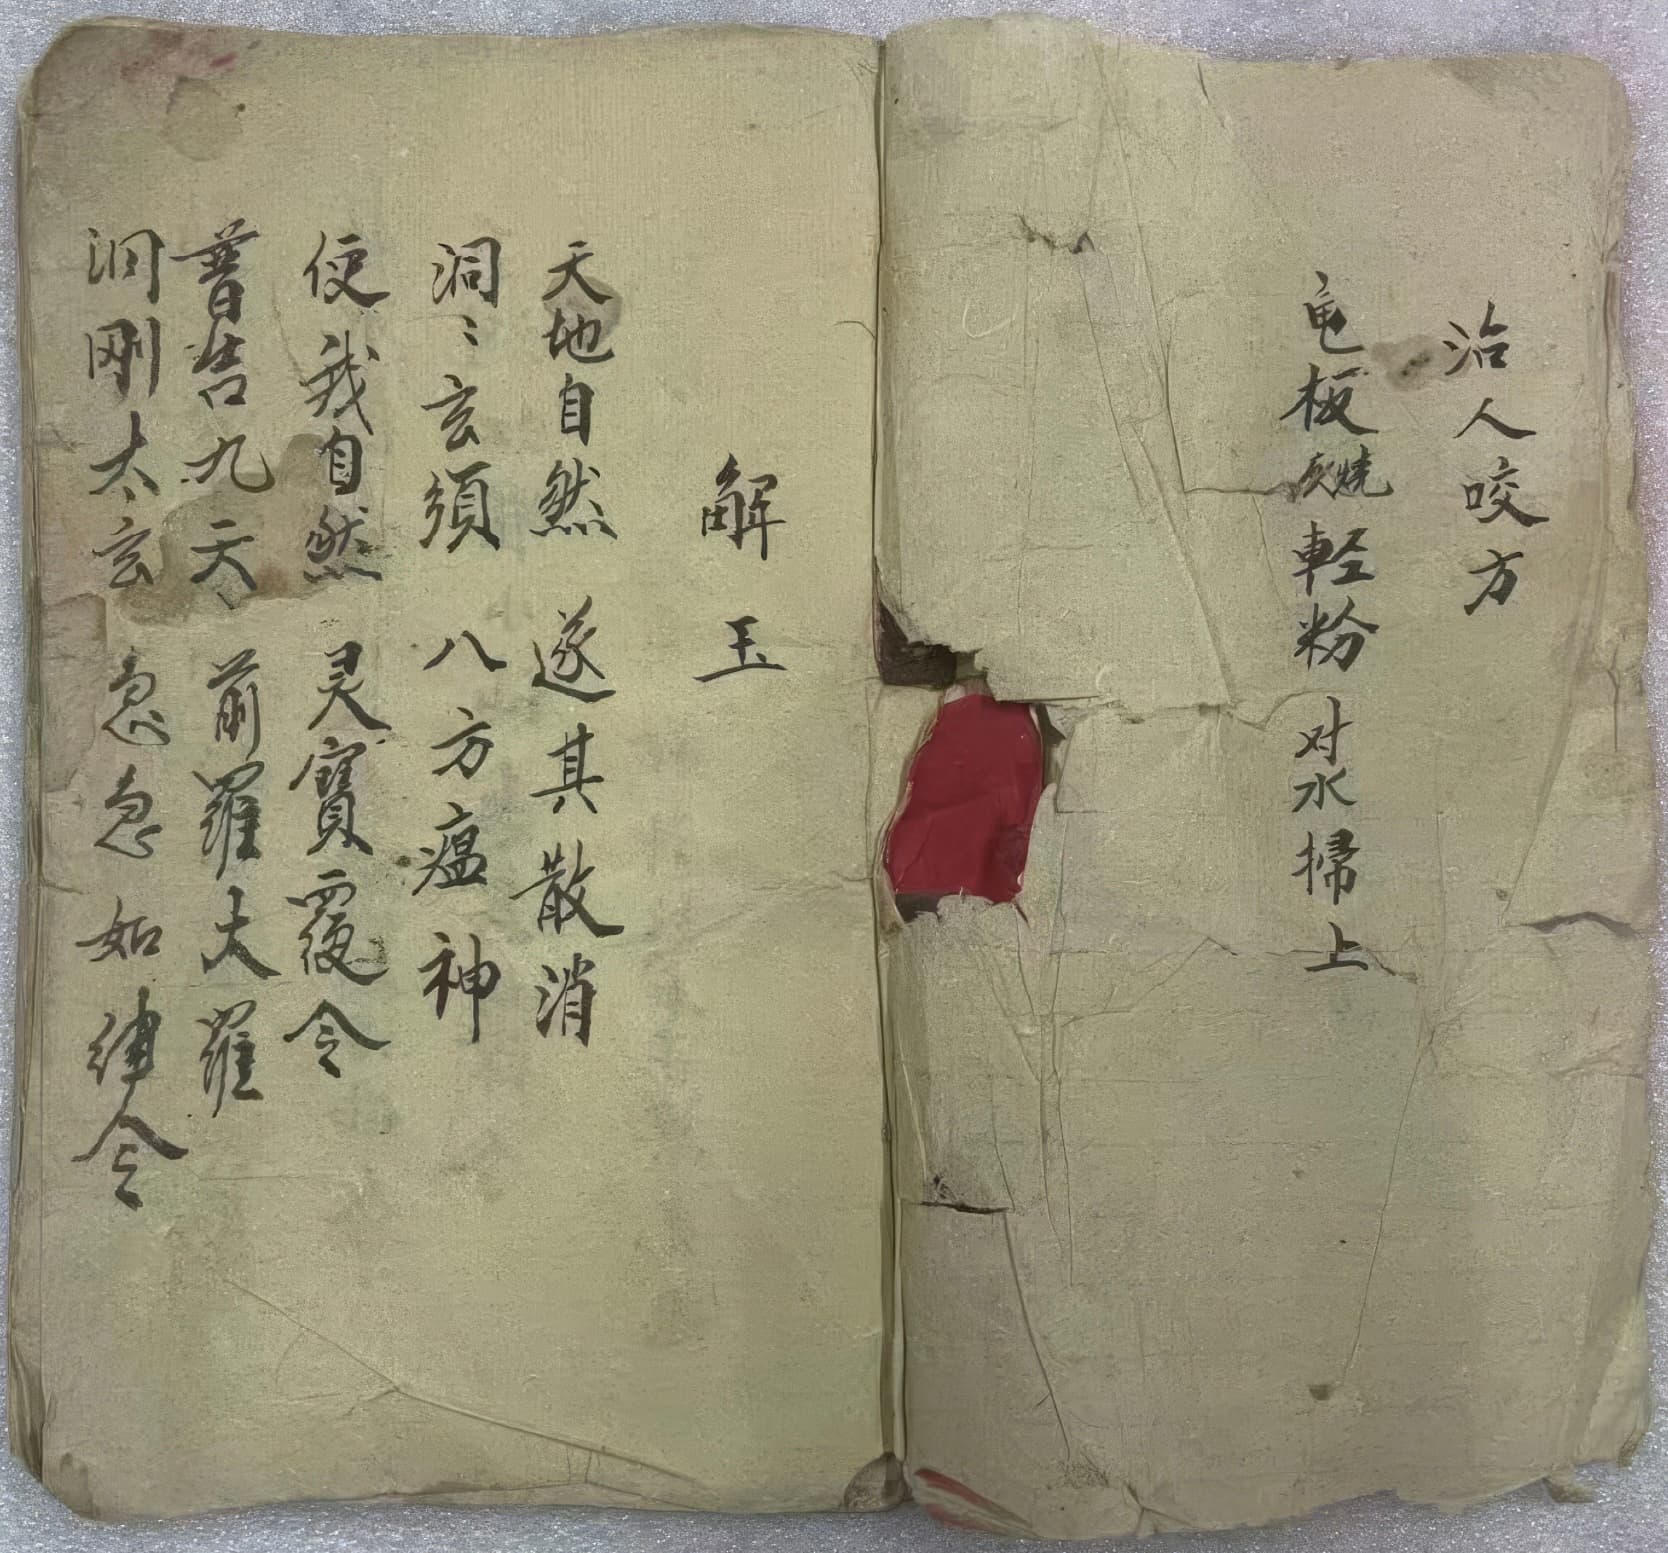 治人咬方
龟板烧灰 軽粉 对水掃上
解玉
天地自然 遂其散消
洞〻玄須 八方瘟神
使我自然 灵寶覆令
普告九天 前羅大羅
洞刚太玄 急急如律令